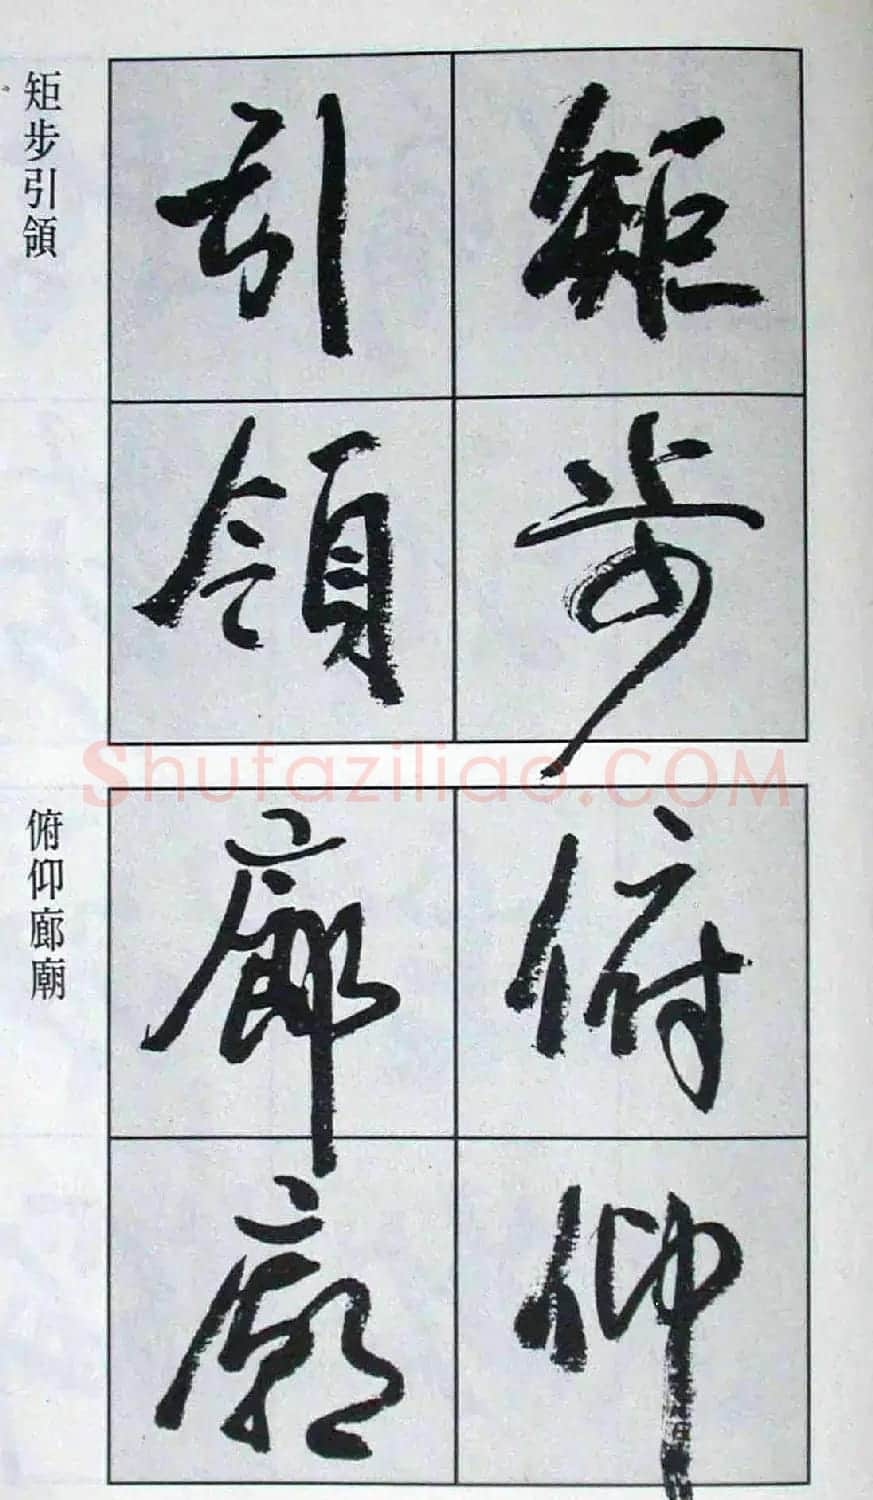 矩步引領
矩步
引領
俯仰廊廟
俯仰
廊廟
Shufaziliao.COM